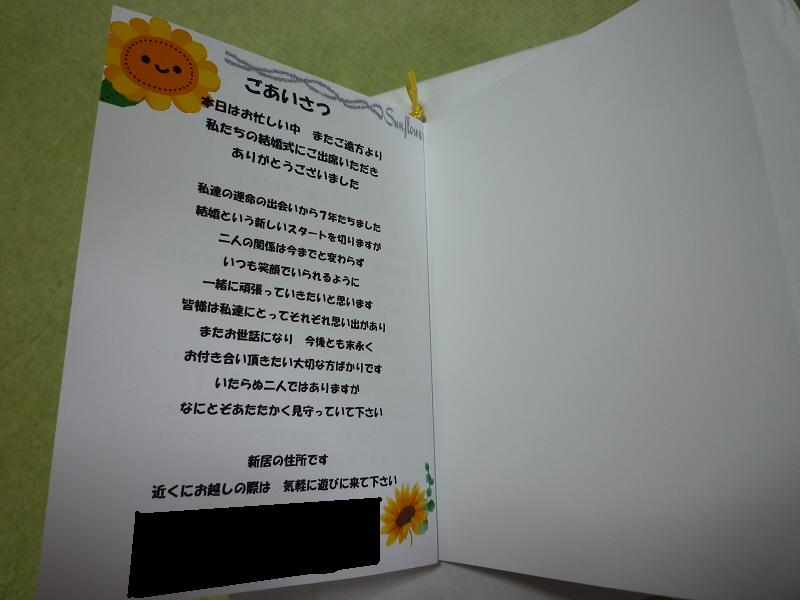 ごあいさつ
Sunflower
本日はお忙しい中　またご遠方より
私たちの結婚式にご出席いただき
ありがとうございました
私達の運命の出会いから7年たちました
結婚という新しいスタートを切りますが
二人の関係は今までと変わらず
いつも笑顔でいられるように
一緒に頑張っていきたいと思います
皆様は私達にとってそれぞれ思い出があり
またお世話になり　今後とも末永く
お付き合い頂きたい大切な方ばかりです
いたらぬ二人ではありますが
なにとぞあたたかく見守っていて下さい
新居の住所です
近くにお越しの際は　気軽に遊びに来て下さい